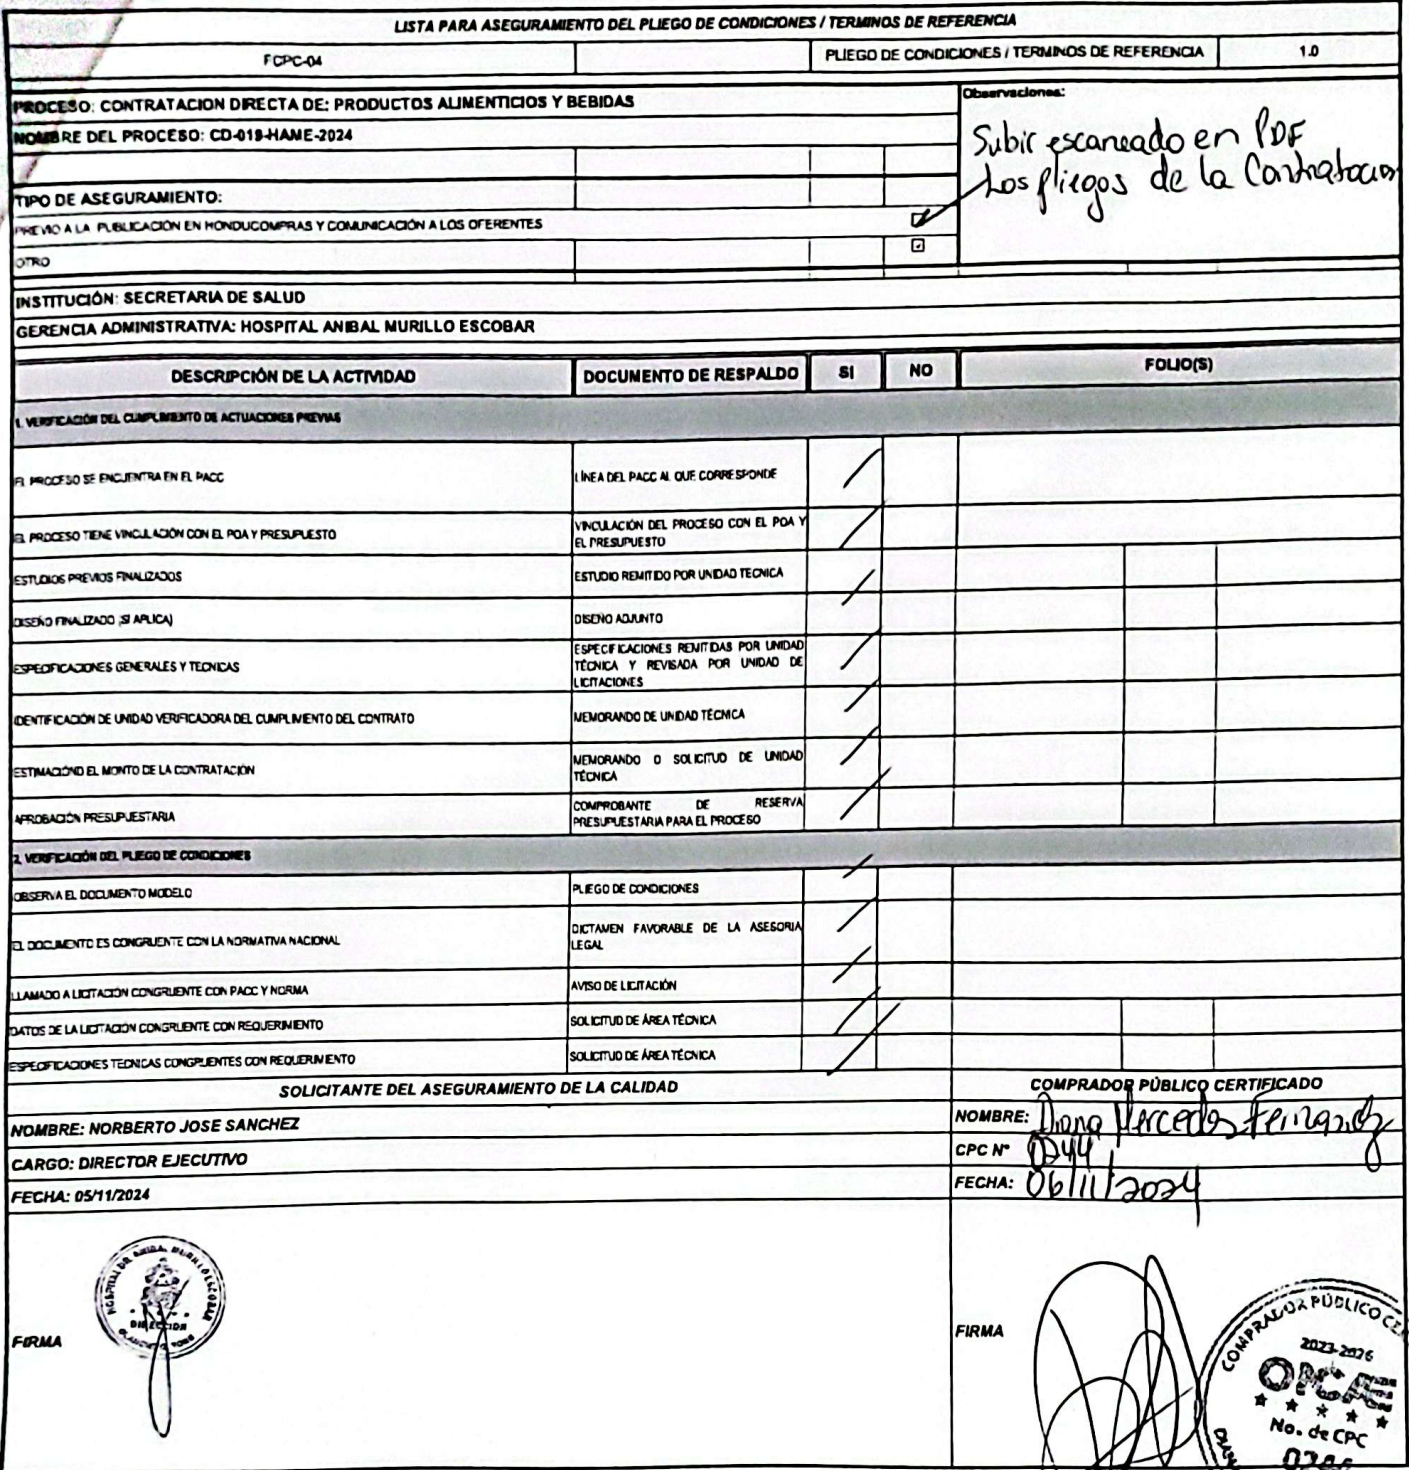 LISTA PARA ASEGURAMIENTO DEL PLIEGO DE CONDICIONES / TERMINOS DE REFERENCIA
FCPC-04 PLIEGO DE CONDICIONES / TERMINOS DE REFERENCIA 1.0
PROCESO: CONTRATACION DIRECTA DE: PRODUCTOS ALIMENTICIOS Y BEBIDAS
NOMBRE DEL PROCESO: CD-019-HAME-2024
Observaciones:
Subir escaneado en PDF
Los pliegos de la Contratacion
TIPO DE ASEGURAMIENTO:
PREVIO A LA PUBLICACIÓN EN HONDUCOMPRAS Y COMUNICACIÓN A LOS OFERENTES
OTRO
INSTITUCIÓN: SECRETARIA DE SALUD
GERENCIA ADMINISTRATIVA: HOSPITAL ANIBAL MURILLO ESCOBAR
DESCRIPCIÓN DE LA ACTIVIDAD DOCUMENTO DE RESPALDO SI NO FOLIO(S)
1. VERIFICACIÓN DEL CUMPLIMIENTO DE ACTUACIONES PREVIAS
EL PROCESO SE ENCUENTRA EN EL PACC LÍNEA DEL PACC AL QUE CORRESPONDE
EL PROCESO TIENE VINCULACIÓN CON EL POA Y PRESUPUESTO VINCULACIÓN DEL PROCESO CON EL POA Y
EL PRESUPUESTO
ESTUDIOS PREVIOS FINALIZADOS ESTUDIO REMITIDO POR UNIDAD TECNICA
DISEÑO FINALIZADO (SI APLICA) DISEÑO ADJUNTO
ESPECIFICACIONES GENERALES Y TECNICAS ESPECIFICACIONES REMITIDAS POR UNIDAD
TÉCNICA Y REVISADA POR UNIDAD DE
LICITACIONES
IDENTIFICACIÓN DE UNIDAD VERIFICADORA DEL CUMPLIMIENTO DEL CONTRATO MEMORANDO DE UNIDAD TÉCNICA
ESTIMACIÓND EL MONTO DE LA CONTRATACIÓN MEMORANDO O SOLICITUD DE UNIDAD
TÉCNICA
APROBACIÓN PRESUPUESTARIA COMPROBANTE DE RESERVA
PRESUPUESTARIA PARA EL PROCESO
2. VERIFICACIÓN DEL PLIEGO DE CONDICIONES
OBSERVA EL DOCUMENTO MODELO PLIEGO DE CONDICIONES
EL DOCUMENTO ES CONGRUENTE CON LA NORMATIVA NACIONAL DICTAMEN FAVORABLE DE LA ASESORIA
LEGAL
LLAMADO A LICITACIÓN CONGRUENTE CON PACC Y NORMA AVISO DE LICITACIÓN
DATOS DE LA LICITACIÓN CONGRUENTE CON REQUERIMIENTO SOLICITUD DE ÁREA TÉCNICA
ESPECIFICACIONES TECNICAS CONGRUENTES CON REQUERIMIENTO SOLICITUD DE ÁREA TÉCNICA
SOLICITANTE DEL ASEGURAMIENTO DE LA CALIDAD COMPRADOR PÚBLICO CERTIFICADO
NOMBRE: NORBERTO JOSE SANCHEZ NOMBRE: Diana Mercedes Fernandez
CARGO: DIRECTOR EJECUTIVO CPC N° 0244
FECHA: 05/11/2024 FECHA: 06/11/2024
FIRMA DIRECCION
FIRMA
COMPRADOR PÚBLICO
2023-2026
ONCAE
No. de CPC